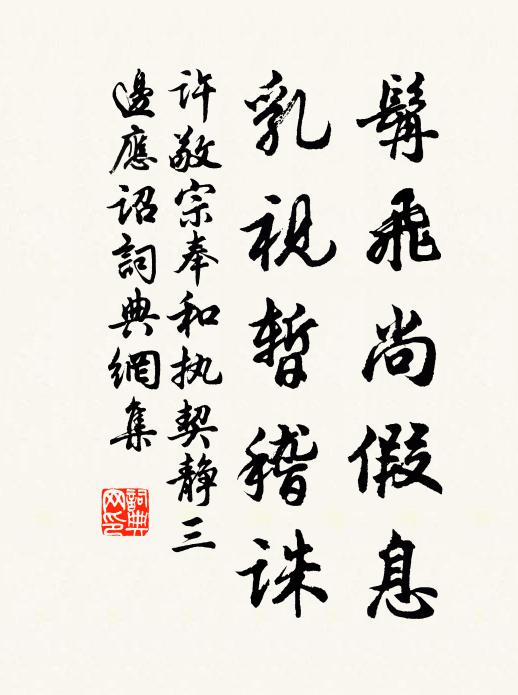 髯飛尚假息
乳視暫稽誅
許敬宗奉和执契靜三
邊應詔詞典網集
詞典网印